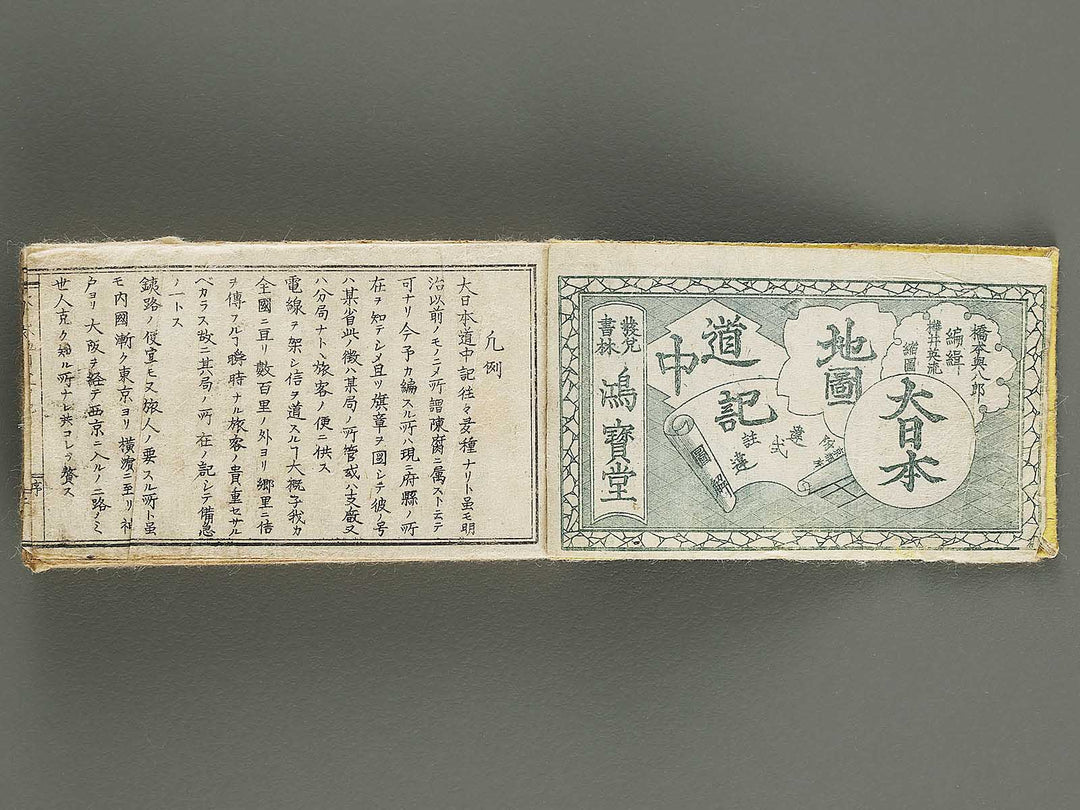 橋本與八郎
編緝
樺井英龍
縮圖
大日本
地圖
道
中
記
註
圖解
發兌
書林
鴻寶堂
凡例
大日本道中記往々多種ナリト虽モ明
治以前ノモノニメ所謂陳腐ニ属スト云テ
可ナリ今予カ編スル所ハ現ニ府縣ノ所
在ヲ知テシメ且リ旗章ヲ図シテ彼ノ号
ハ某省此ノ徽ハ某局ノ所管或ハ支廰又
ハ分局ナト丶旅客ノ便ニ供ス
電線ヲ架シ信ヲ道スルヿ大概子我カ
全國ニ亘リ數百里ノ外ヨリ郷里ニ信
ヲ傳フルヿ瞬時ナル旅客ノ貴重セサル
ベカラス故ニ其局ノ所在ノ記シテ備急
ノ一トス
銕路ノ便宜モ又旅人ノ要スル所ト虽
モ内國漸ク東京ヨリ横濱ニ至リ神
戸ヨリ大阪ヲ経テ西京ニ入ルノ二路ノミ
世人克ク知ル所ナレ共コレヲ贅ス
序